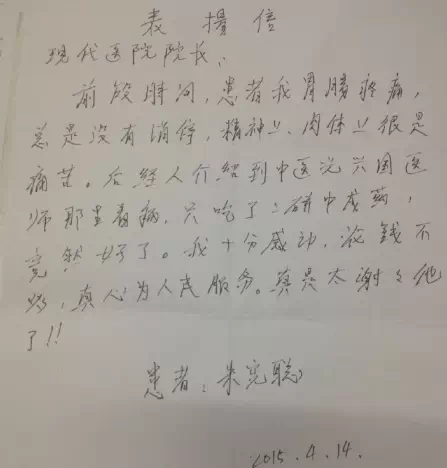 表 揚 信
现代医院院长：
前段时间，患者我胃膓疼痛，
总是没有消停，精神上、肉体上很是
痛苦。后经人介绍到中医沈兴国医
师那里看病，只吃了二磅中成药，
竟然好了。我十分感动，花钱不
多，真心为人民服务。真是太谢谢他
了!!
患者：朱宪聪
2015.4.14.